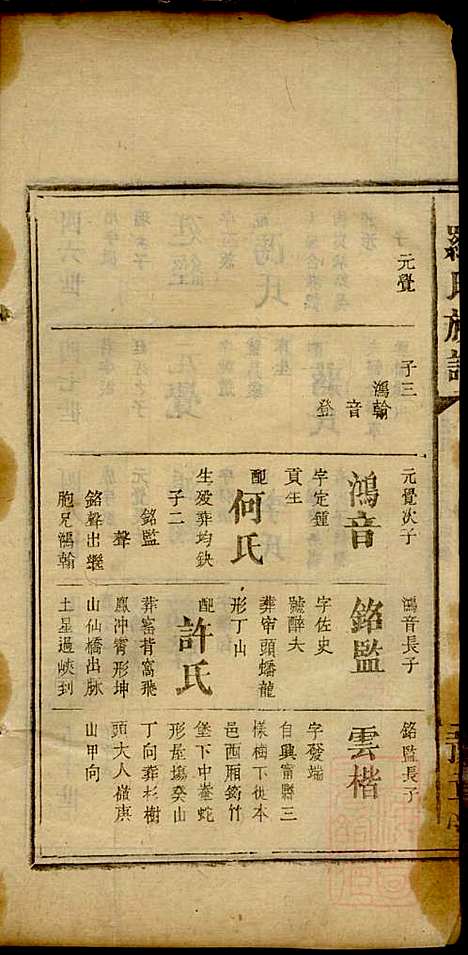 羅氏族譜
元覺
子三
鴻翰
音
登
元覺次子
鴻音
字定鍾
貢生
配
何氏
生殁葬均缺
子二
銘監
聲
銘聲出繼
胞兄鴻翰
鴻音長子
銘監
字佐史
號醉夫
葬帘頭蟠龍
形丁山
配
許氏
葬窰背窩飛
鳳冲霄形坤
山仙橋出脉
土星過峽到
銘監長子
雲楷
字發端
自興甯縣三
樣梅下徙本
邑西厢筠竹
堡下中峯蛇
形屋塲癸山
丁向葬杉樹
頭大人嶺庚
山甲向